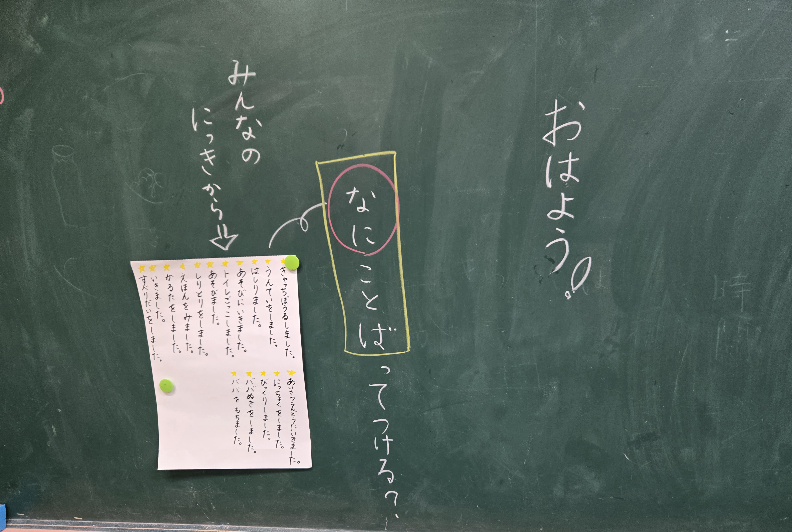 おはよう!
なにことばってつける?
みんなの
にっきから
きゃっちぼうるしました。
うんていをしました。
はしりました。
あそびにいきました。
トイレごっこしました。
あそびました。
しりとりをしました。
えほんをみました。
かるたをしました。
いきました。
すべりだいをしました。
いきました。
しました。
びっくりしました。
ババぬきをしました。
もちました。